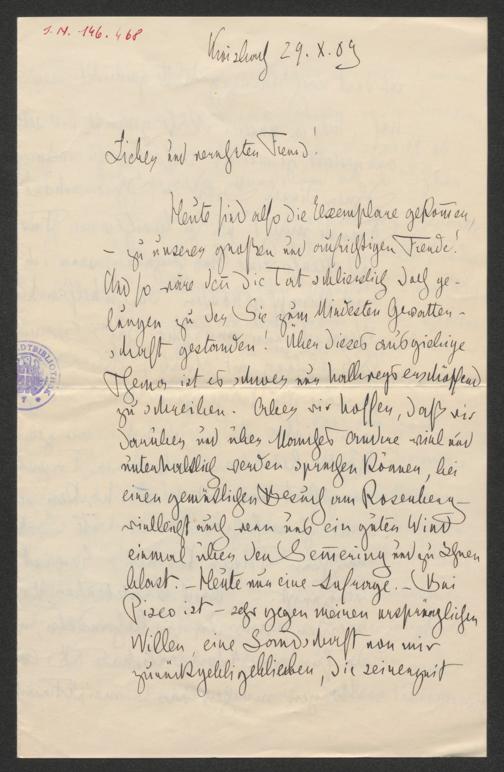 I.N. 146.468
29. X. 09
Lieber und verehrter Freund!
Heute sind also die Exemplare gekommen,
– zu unserer großen und aufrichtigen Freude!
Und so wäre denn die Tat schliesslich doch ge-
lungen zu der Sie zum Mindesten Gevatter-
schaft gestanden! Über dieses ausgiebige
Thema ist es schwer nur halbwegs erschöpfend
zu schreiben. Aber wir hoffen, daß wir
darüber und über Manches andere viel und
unterhaltlich werden sprechen können, bei
einem gemütlichen Besuch am Rosenberg –
vielleicht auch wenn uns ein guter Wind
einmal über den Semmering und zu Ihnen
bläst. – Heute nur eine Anfrage. – Bei
Pisco ist – sehr gegen meinen ursprünglichen
Willen, eine Landschaft von mir
zurückgeblieben, die seinerzeit